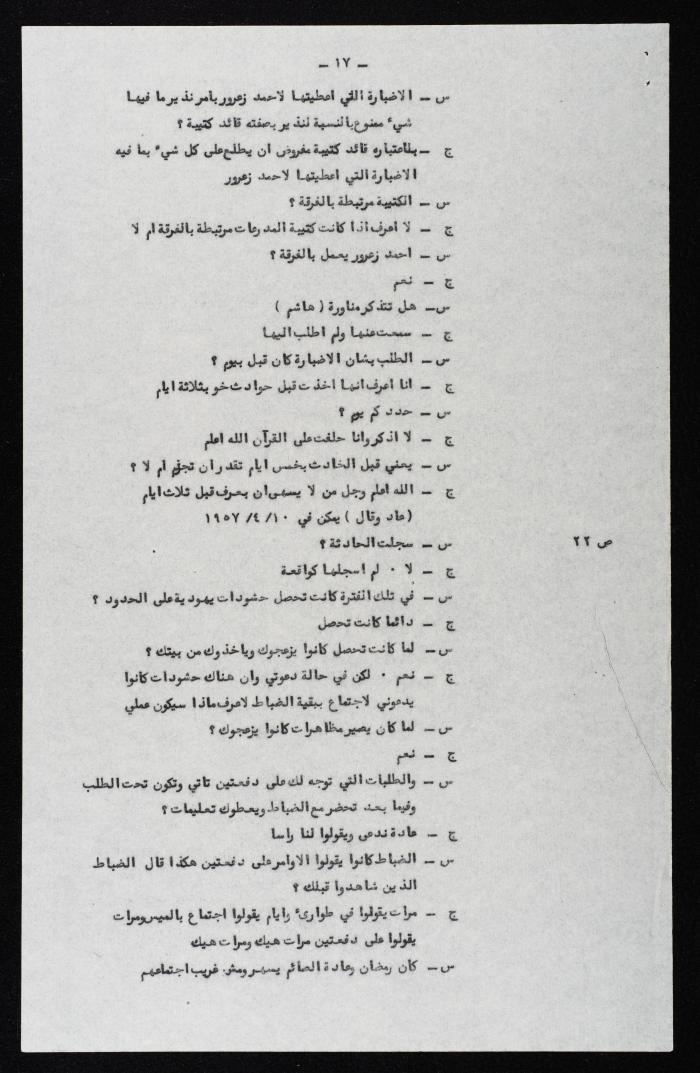 - ١٧ -
س - الاضبارة اللتي اعطيتها لاحمد زعرور بامر نذير ما فيها
شيء ممنوع بالنسبة لنذير بصفته قائد كتيبة ؟
ج - بلاعتباره قائد كتيبة مفروض ان يطلع على كل شيء بما فيه
الاضبارة التي اعطيتها لاحمد زعرور
س - الكتيبة مرتبطة بالفرقة ؟
ج - لا اعرف اذا كانت كتيبة المدرعات مرتبطة بالفرقة ام لا
س - احمد زعرور يعمل بالفرقة ؟
ج - نعم
س - هل تتذكر مناورة ( هاشم )
ج - سمعت عنها ولم اطلب اليها
س - الطلب بشان الاضبارة كان قبل بيوم ؟
ج - انا اعرف انها اخذت قبل حوادث خو بثلاثة ايام
س - حدد كم يوم ؟
ج - لا اذكر وانا حلفت على القرآن الله اعلم
س - يعني قبل الحادث بخمس ايام تقدر ان تجزم ام لا ؟
ج - الله اعلم وجل من لا يسهى ان بعرف قبل ثلاث ايام
( عاد وقال ) يمكن في ١٠/ ٤/ ١٩٥٧
ص ٢٢ س - سجلت الحادثة ؟
ج - لا ٠ لم اسجلها كواقعة
س - في تلك الفترة كانت تحصل حشودات يهودية على الحدود ؟
ج - دائما كانت تحصل
س - لما كانت تحصل كانوا يزعجوك وياخذوك من بيتك ؟
ج - نعم ٠ لكن في حالة دعوتي وان هناك حشودات كانوا
يدعوني لاجتماع ببقية الضباط لاعرف ماذا سيكون عملي
س - لما كان يصير مظاهرات كانوا يزعجوك ؟
ج - نعم
س - والطلبات التي توجه لك على دفعتين تاتي وتكون تحت الطلب
وفيما بعد تحضر مع الضباط ويعطوك تعليمات ؟
ج - عادة ندعى ويقولوا لنا راسا
س - الضباط كانوا يقولوا الاوامر على دفعتين هكذا قال الضباط
الذين شاهدوا قبلك ؟
ج - مرات يقولوا في طوارىء وايام يقولوا اجتماع بالميس ومرات
يقولوا على دفعتين مرات هيك ومرات هيك
س - كان رمضان وعادة الصائم يسهر ومش غريب اجتماعهم